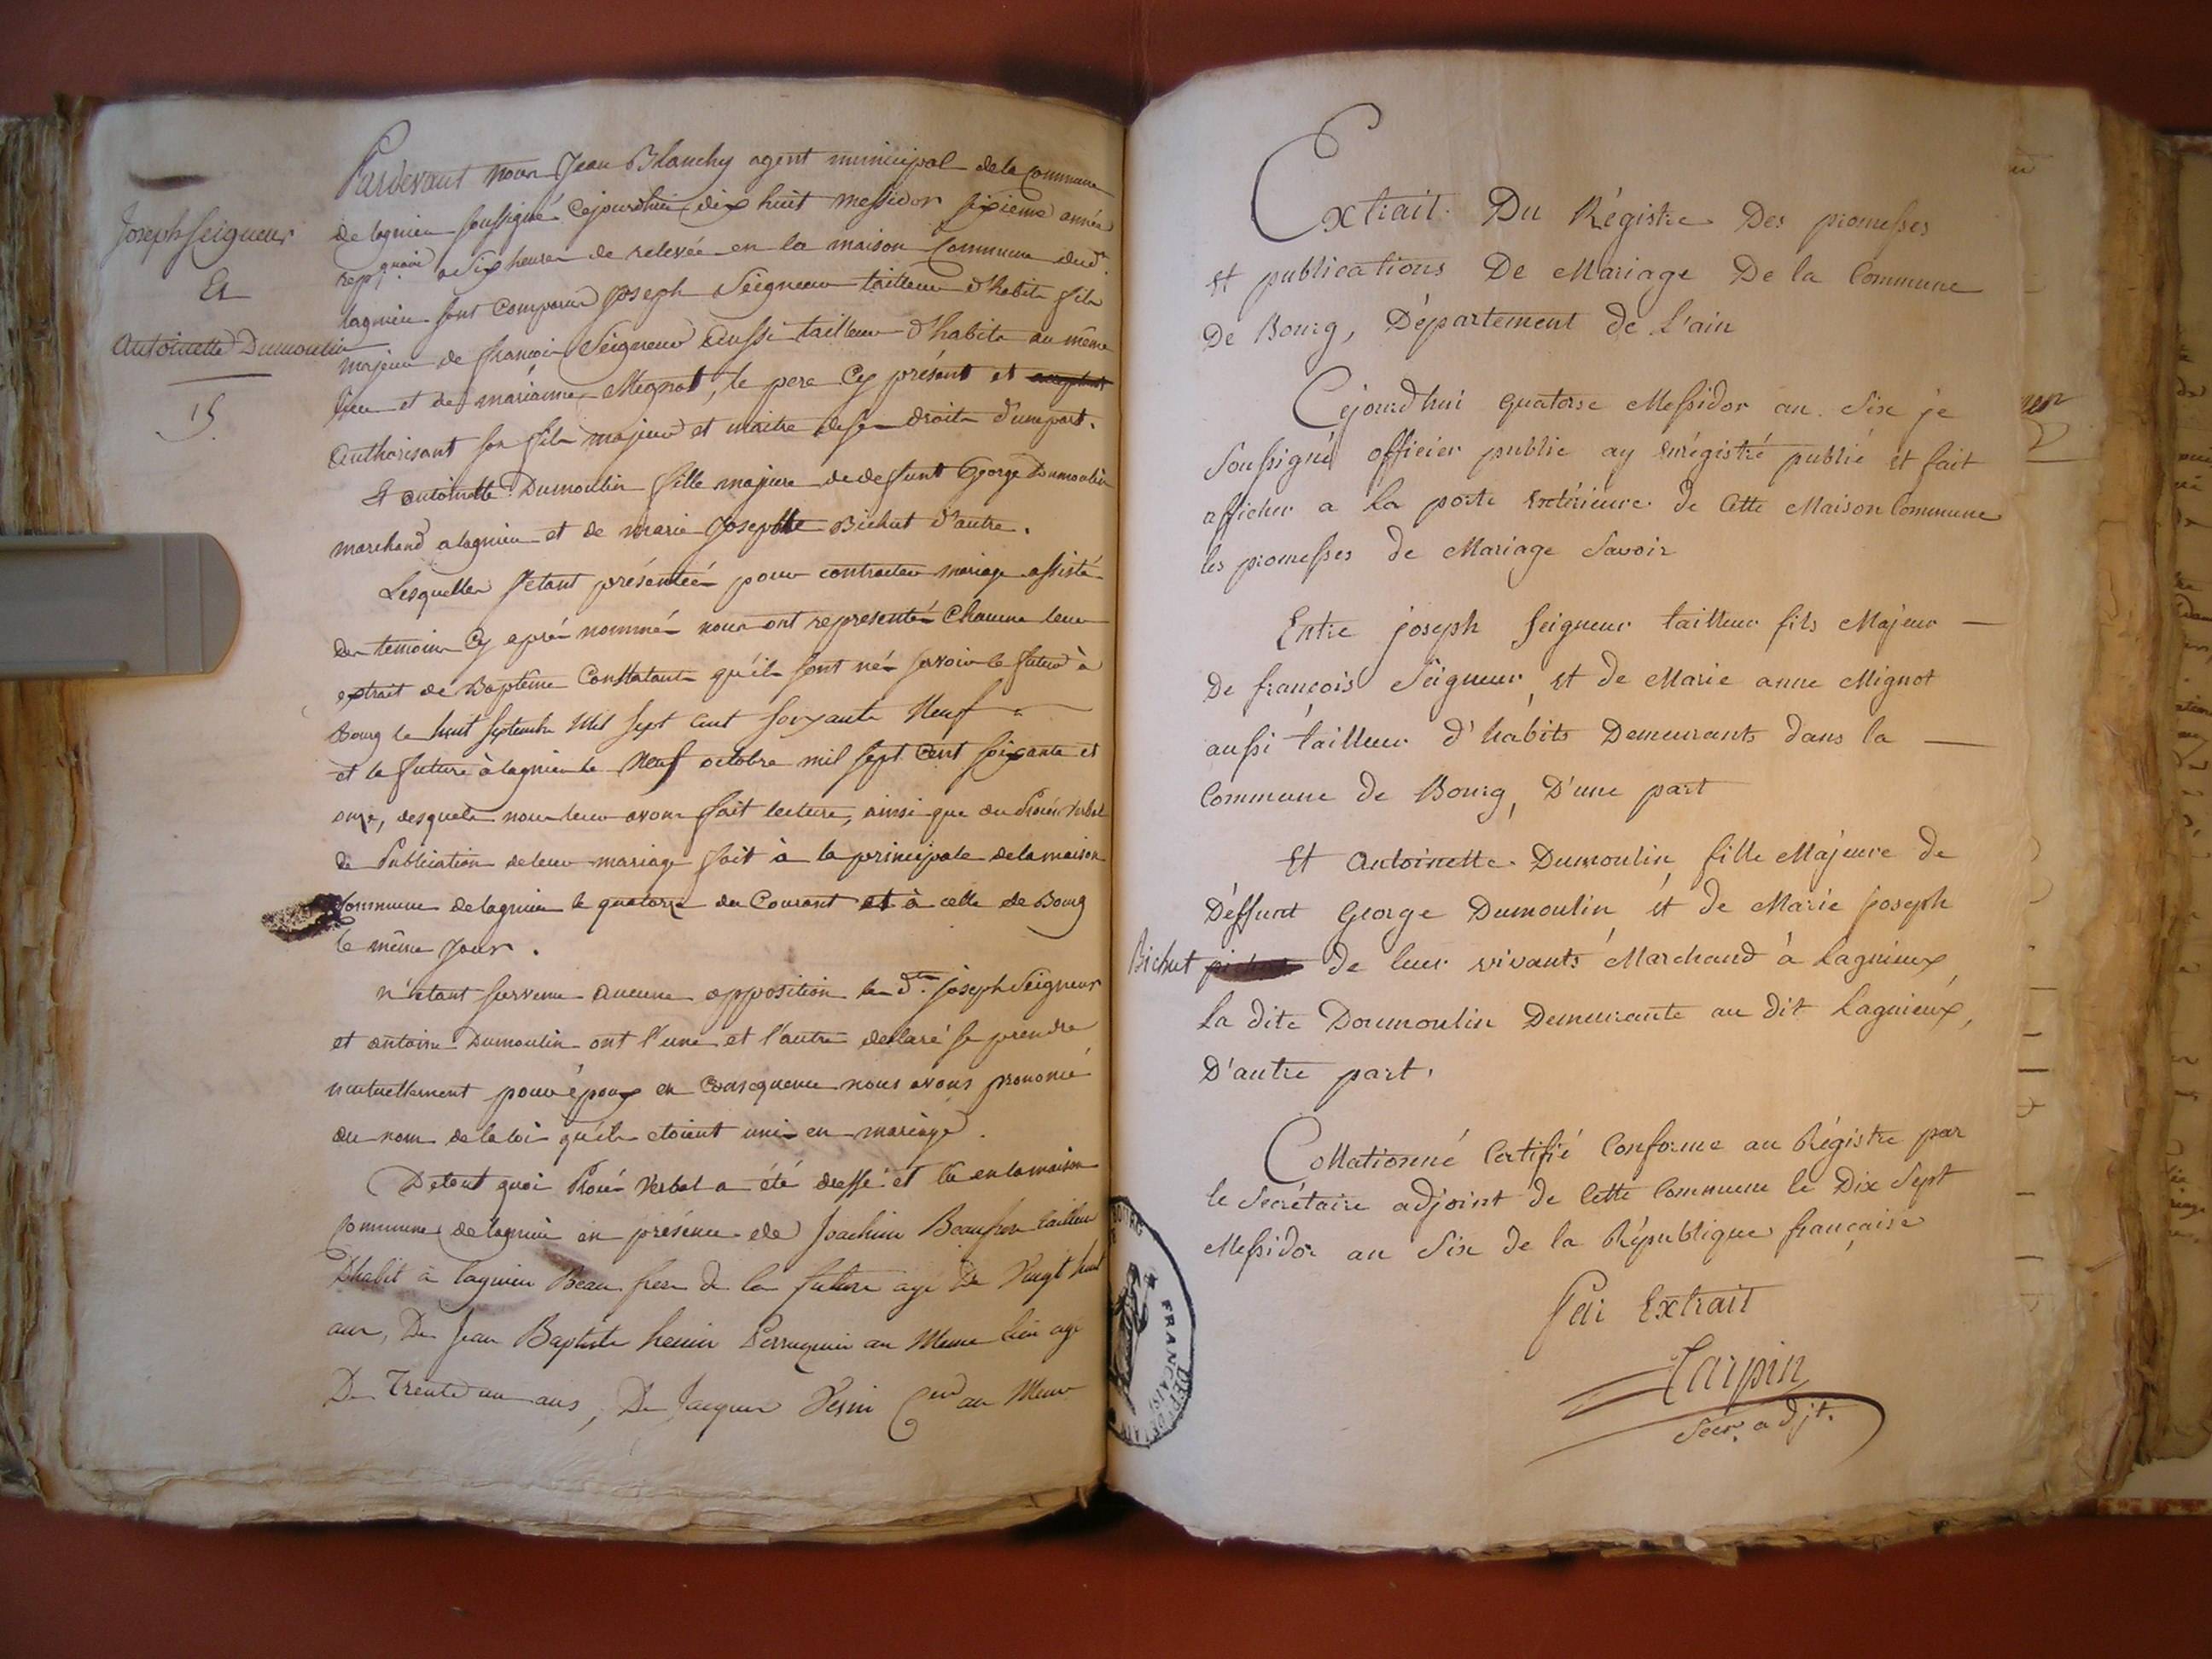 Joseph Seigneur
Et
Antoinette Dumoulin
15.
Pardevant nous Jean Blanchy agent municipal de la Commune
de lagnieu soussigné Cejourdhui dix huit messidor sixieme année
repquaine a Six heures de relevée en la maison Commune dud.
lagnieu sont Comparus Joseph Seigneur tailleur d'habits fils
majeur de françois Seigneur Aussi tailleur d'habits au même
lieu et de mariamne Mignot, le pere Cy présent et
Authorisant son fils majeur et maitre de ses droits d'une part.
Et antoinette Dumoulin fille majeure de defunt George Dumoulin
marchand a lagnieu et de marie Josephte Bichut d'autre.
Lesquelles s'etant présentées pour contracter mariage assistés
des temoins Cy après nommés nous ont representés Chacun leur
extrait de Baptême Constatant qu'ils sont nés savoir le futur à
Bourg le huit septembre Mil sept cent soixante Neuf
et la future à lagnieu le Neuf octobre mil sept Cent soixante et
onze, desquels nous leur avons fait lecture, ainsi que du Procès Verbal
de Publication de leur mariage fait à la principale de la maison
Commune de lagnieu le quatorze du Courant et à celle de Bourg
le même Jour.
n'etant survenu Aucune opposition les dts. joseph Seigneur
et antoine Dumoulin ont l'une et l'autre declaré se prendre
mutuellement pour époux en Consequence nous avons prononcé
au nom de la loi qu'ils etoient unis en mariage.
De tout quoi Procès Verbal a été dressé et lû en la maison
Commune de lagnieu en présence de Joachim Beaufrere tailleur
D'habit à lagnieu Beau frere de la future agé De Vingt huit
ans, De Jean Baptiste henin Perruquier au Meme lieu agé
De Trente un ans, De Jacques au Meme
Extrait Du Régistre Des promesses
et publications De Mariage De la Commune
De Bourg, Département de L'ain
Cejourd'hui quatorse Messidor an Six je
Soussigné officier public ay enrégistré publié et fait
afficher a la porte extérieure de Cette Maison Commune
les promesses de Mariage Savoir
Entre joseph Seigneur tailleur fils Majeur —
De françois Seigneur et de Marie anne Mignot
aussi tailleur d'habits Demeurants dans la —
Commune de Bourg, D'une part
Et Antoinette Dumoulin fille Majeure de
Déffunt George Dumoulin et de Marie joseph
Bichut de leur vivants Marchand à Lagnieux
La dite Doumoulin Demeurante au dit Lagnieux,
D'autre part.
Collationné Certifié Conforme au Régistre par
le Secrétaire adjoint de Cette Commune le Dix Sept
Messidor an Six de la République française
Par Extrait
Carpin
Secr. adjt.
FRANÇAISE